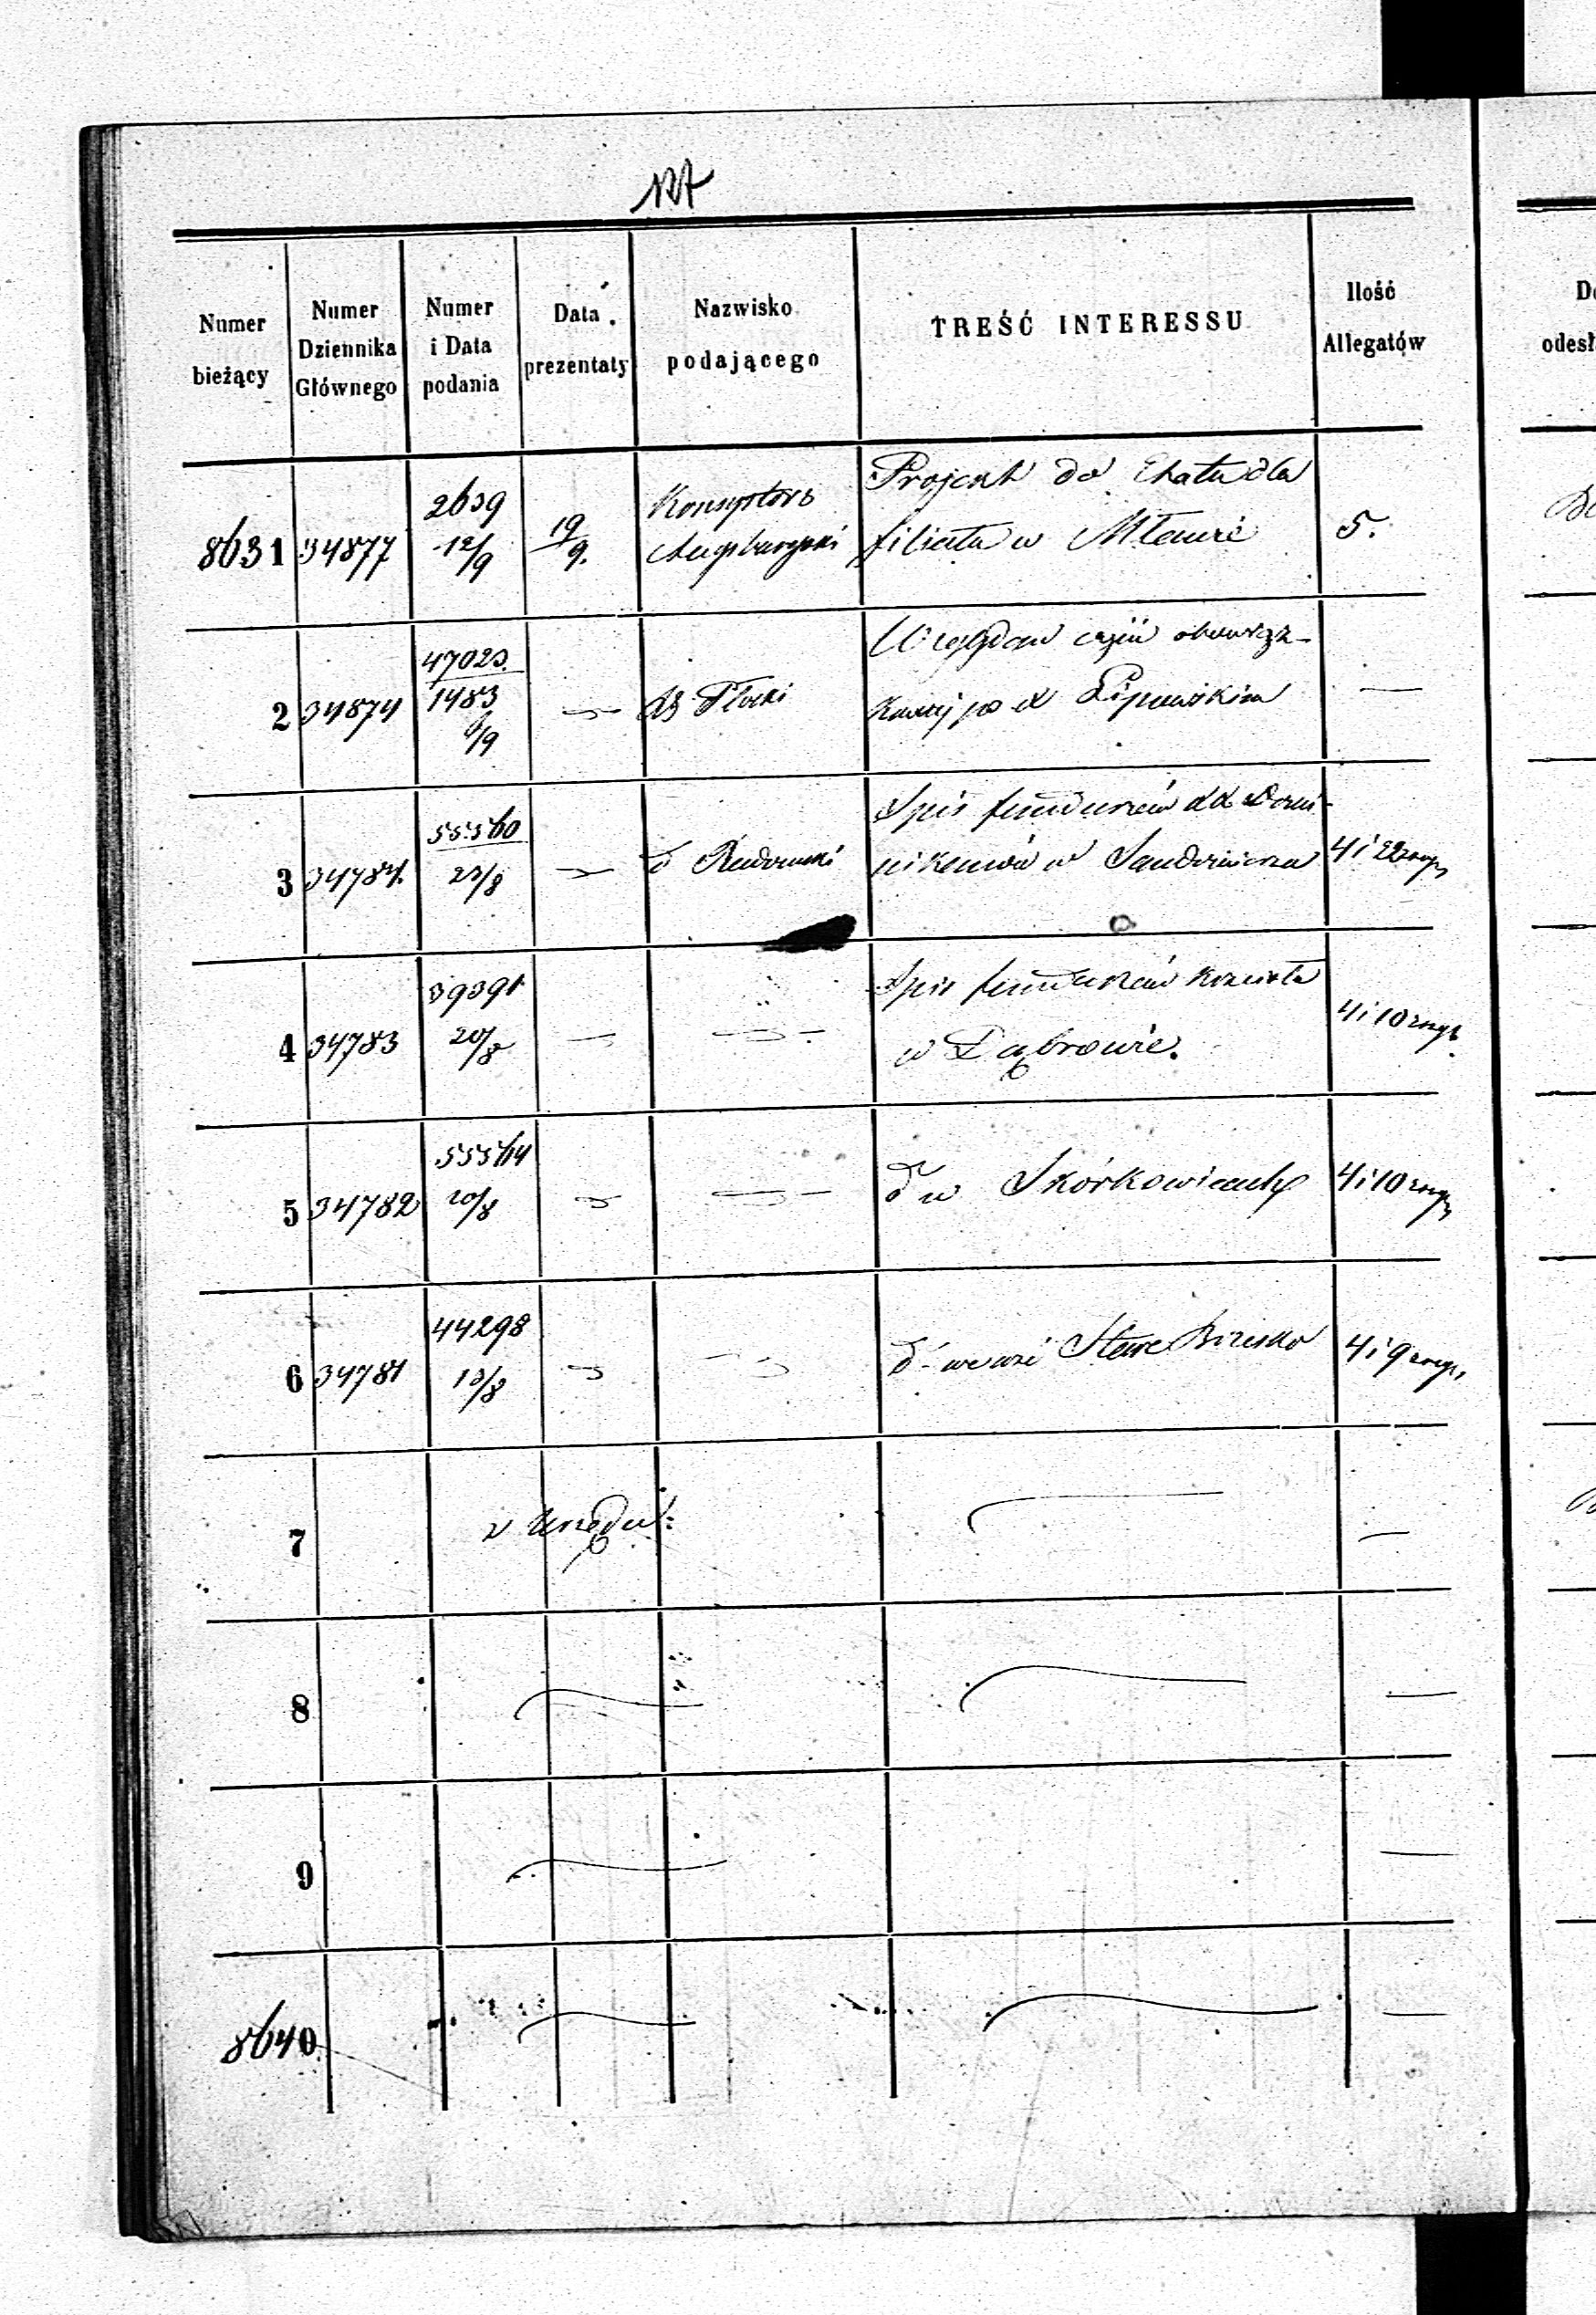 127
Numer bieżący
Numer Dziennika Głównego
Numer i Data podania
Data prezentaty
Nazwisko podającego
TREŚĆ INTERESSU
Ilość Allegatów
8631 34877 2639 12/9 19/9. Konsystorz Augsburgski
Projekt do Etatu dla
filiału w Mławie
5.
2 34874 47023. 1483 6/9 Płocki
po Lipowskim
—
3 34784. 55560 23/8 do Radomski
Spis funduszów XX Domi-
nikanów w Sandomierzu
4 i 22
4 34783 39391 20/8
Spis funduszów kościoła
w Dąbrowie.
4 i 10
5 34782 55564 20/8
do w Skórkowicach
4 i 10
6 34781 44298 13/8
do we wsi Stare Brzesko
4 i 9
7 z Urzędu
8
9
8640
D
odesł